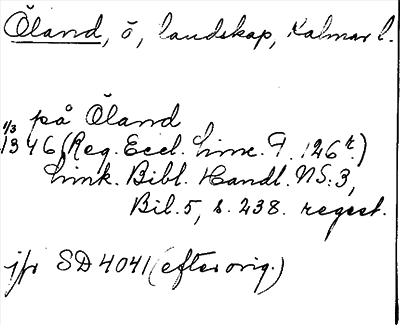 Öland, ö, landskap, Kalmar l.
på Öland
1/3
1346 (Reg. Eccl. Linc. F. 126 r.)
Link. Bibl. Handl. NS:3,
Bil. 5, s. 238. regest.
jfr SD 4041 (efter orig.)